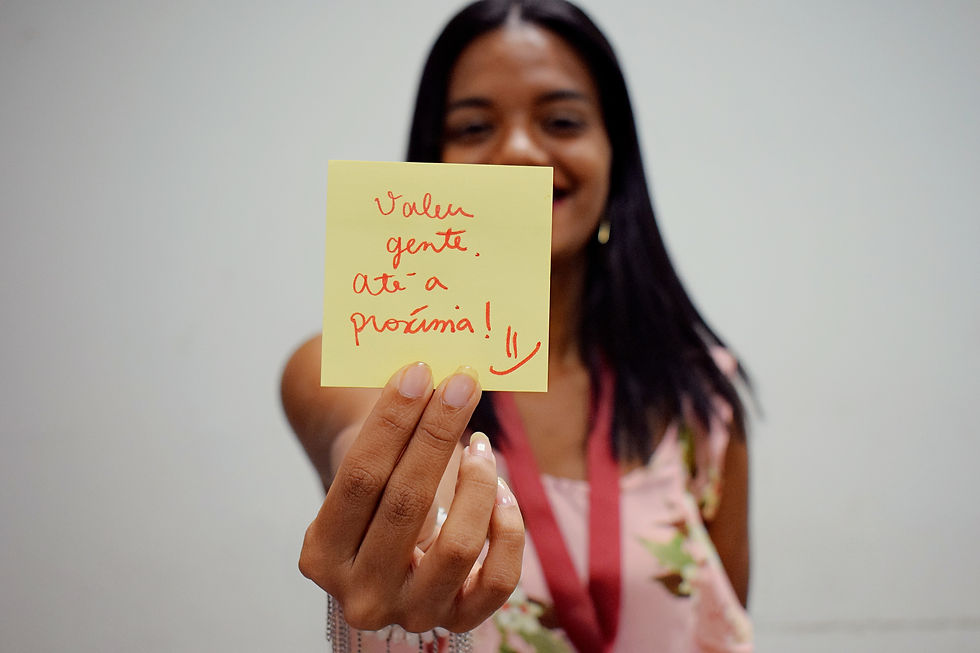 Valeu
gente.
Até a
próxima!